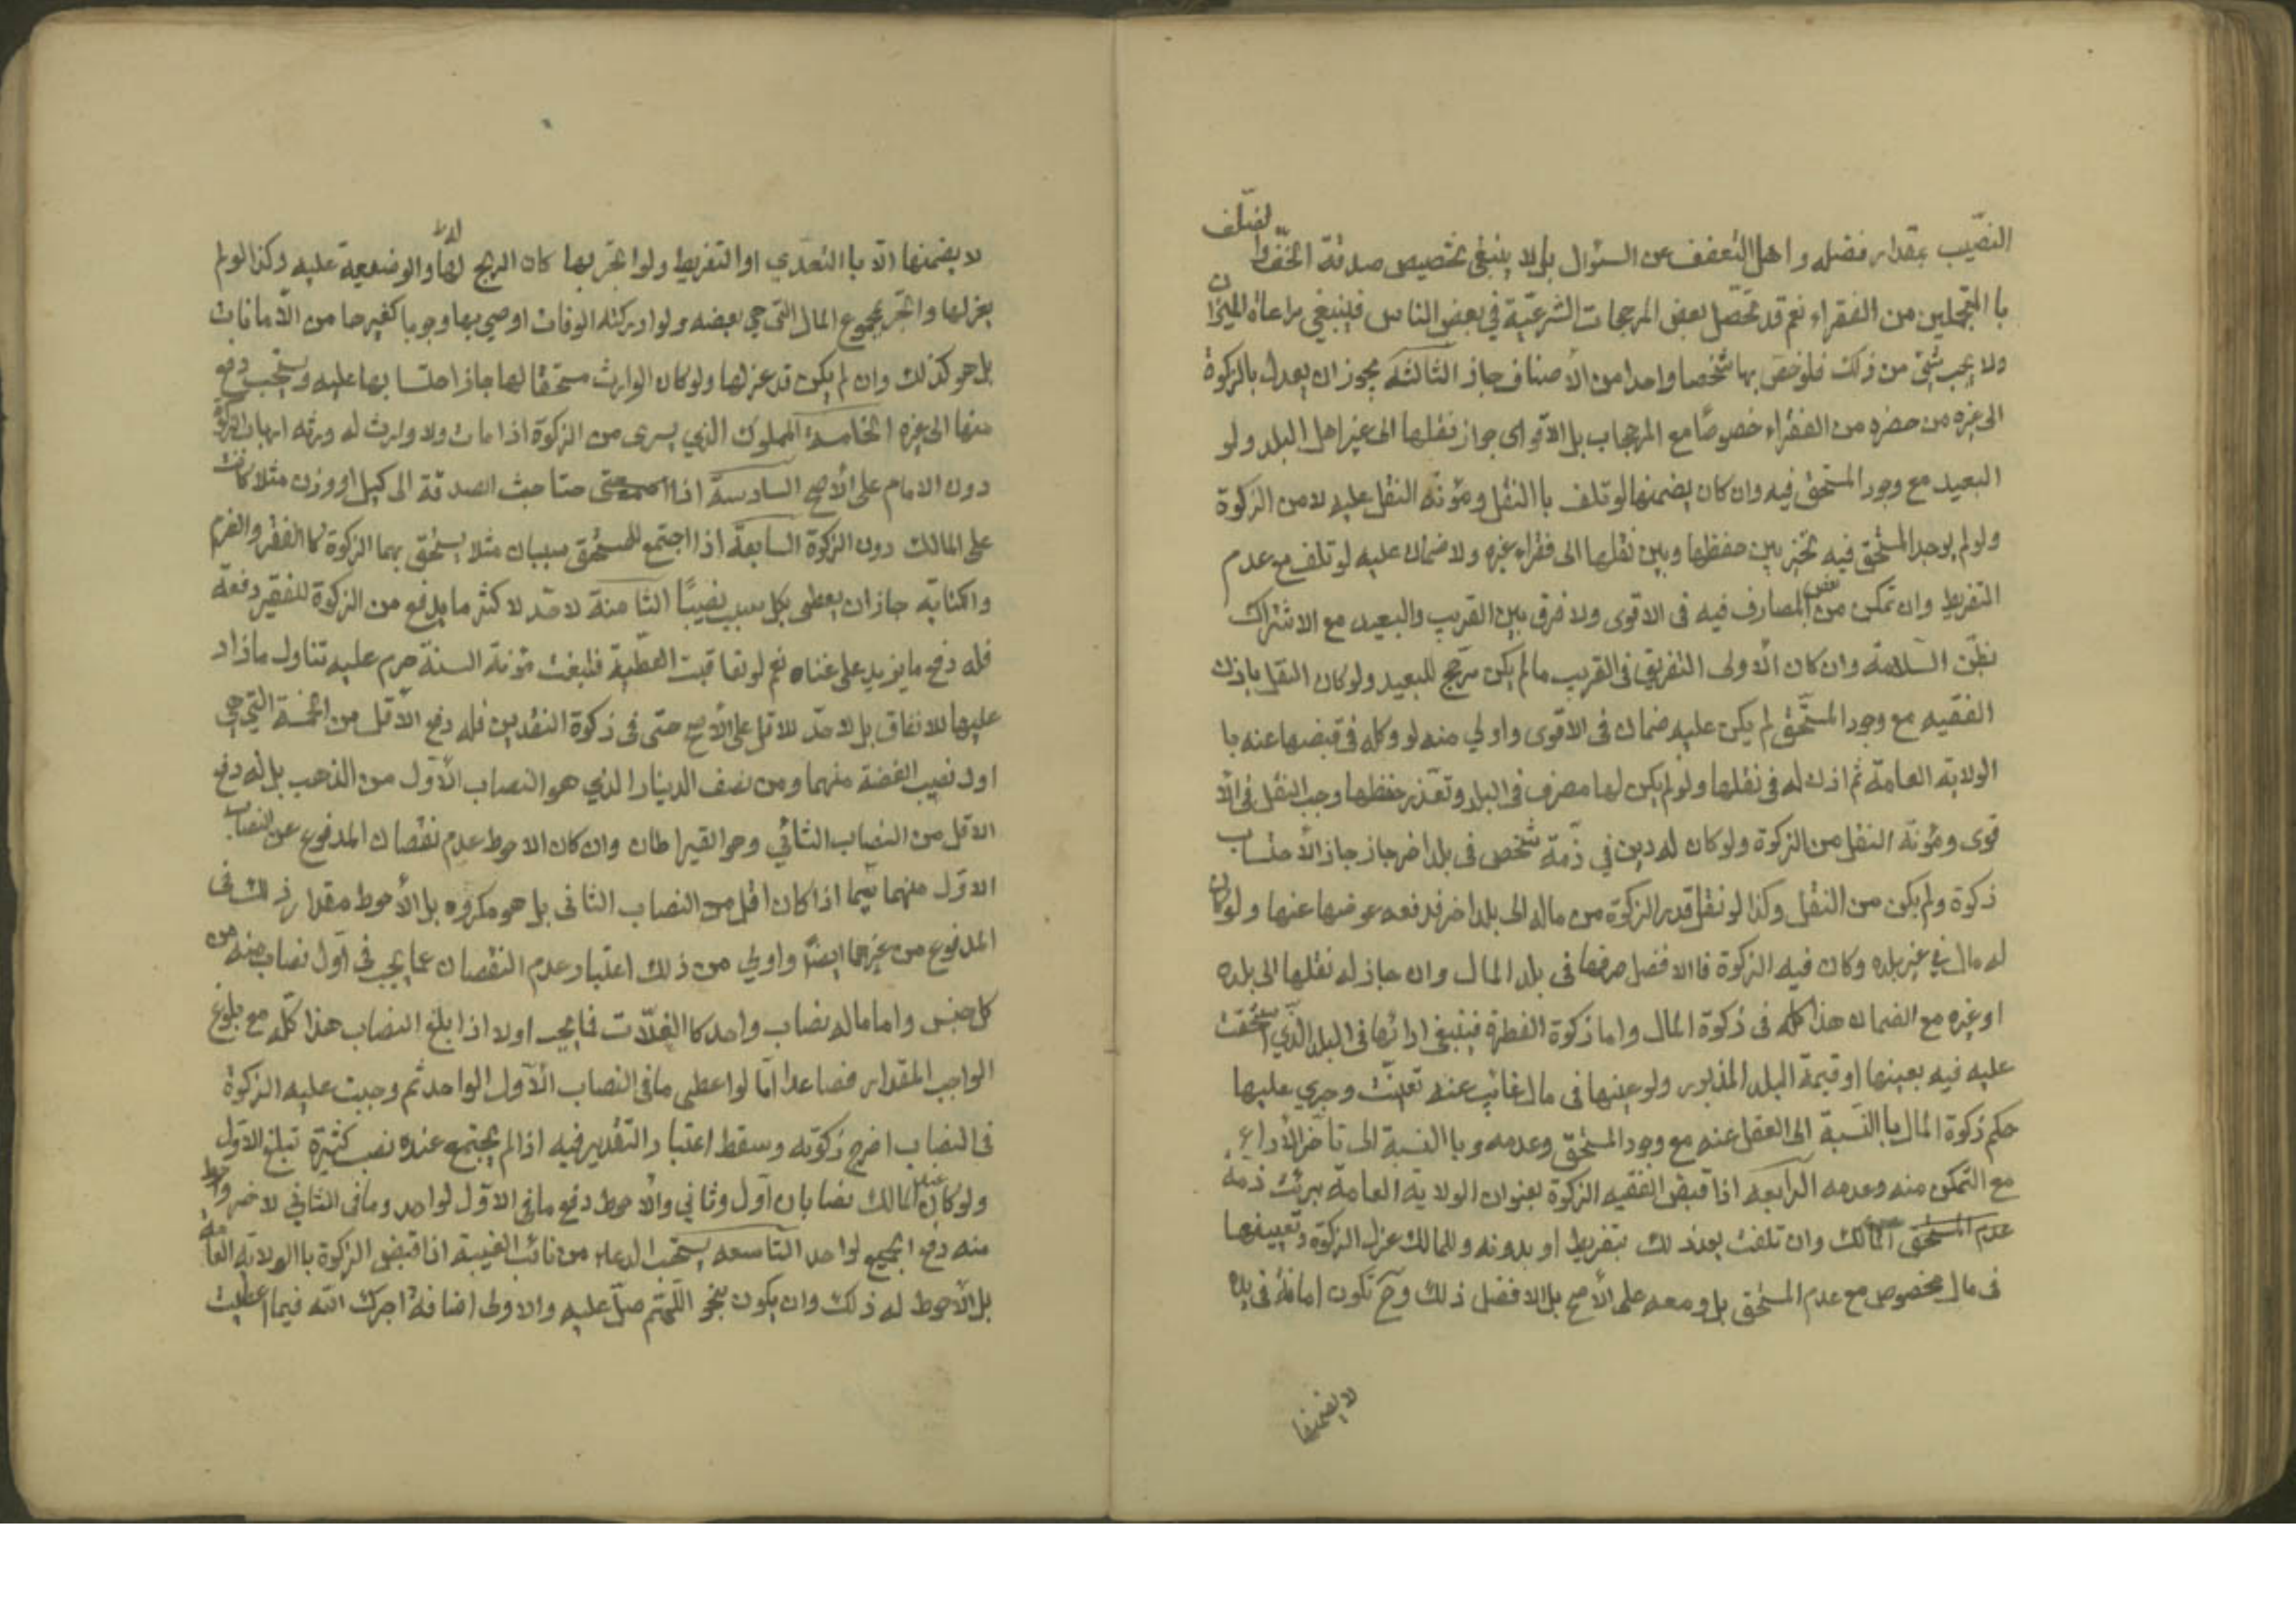 النصّيب بمقدار فضله و اهل التعفف عن السئوال بل لا ينبغى تخصيص صدقة الخفّ والضلف
با المتجملين من الفقراء نعم قد تحصّل بعض المرجحات الشرعيّة في بعض الناس فينبغي مراعاة الميزان
ولا يجب شئ من ذلك فلو خص بها شخصا واحدا من الأصناف جاز الثالثه يجوز ان يعدل بالزكوة
الى غيره من حضره من الفقراء خصوصًا مع المرجحاب بل الاقواى جواز نقلها الى غير اهل البلد ولو
البعيد مع وجود المستحق فيه وان كان يضمنها لو تلف با النقل ومؤنه النقل عليه لا من الزكوة
ولو لم يوجد المستحق فيه تخير بين حفظها وبين نقلها الى فقراء غيره ولا ضمان عليه لو تلف مع عدم
التفريط وان تمكن من بعض المصارف فيه فى الاقوى ولا فرق بين القريب والبعيد مع الاشتراك
بظنّ السّلامة وان كان الأولى التفريق فى القريب ما لم يكن مرّجح للبعيد ولو كان النقل باذن
الفقيه مع وجود المستّحق لم يكن عليه ضمان فى الاقوى واولي منه لو وكله فى قبضها عنه با
الولاية العامة ثم اذن له فى نقلها ولو لم يكن لها مصرف فى البلد وتعّذر حفظها وجب النقل فى الأ
قوى ومؤنّة النقل من الزكوة ولو كان له دين في ذّمة شخص فى بلد اخر جاز جاز الأحتساب
زكوة ولم يكن من النقل وكذا لو نقل قدر الزكوة من ماله الى بلد اخر فدفعه عوضها عنها ولو كان
له مال في غير بلده وكان فيه الزكوة فا الافضل صرفها فى بلد المال وان جاز له نقلها الى بلده
او غيره مع الضمان هذا كله فى زكوة المال واما زكوة الفطرة فينبغى ادائها فى البلد الّذي استحقت
عليه فيه بعينها او قيمة البلد المذبور ولو عينها فى مال غائب عنه تعينّت وجري عليها
حكم زكوة المال با النسّبة الى العقل عنه مع وجود المستحّق وعدمه وبا النسبة الى تأخر الأداء
مع التمكن منه وعدمه الرابعه اذا قبض الفقيه الزكوة بعنوان الولاية العامة برئت ذمة
عدم المستحق المالك وان تلفت بعند لك بتفريط او بدونه وللمالك عزل الزكوة وتعيينها
فى مال مخصوص مع عدم المستحق بل ومعه على الأصح بل الافضل ذلك وح تكون امانة فى يده
لا يضمنها
لا يضمنها الاّ با التعدّي او التفريط ولو اتجر بها كان الربح لها والوضعية عليه وكذا لو لم
يعزلها واتجر بمجموع المال التى هي بعضه ولو ادركته الوفات اوصي بها وجوبا كغيرها من الأمانات
بل هو كذلك وان لم يكن قد عزلها ولو كان الوارث مستحقا لها جاز احتسابها عليه ويستحب دفع
منها الى غيره الخامسة المملوك الذي يسرى من الزكوة اذا مات ولا وارث له ورثه اربابه الزكوة
دون الامام على الأصح السادسة اذا حتاجث الصدقة الى كيل او وزن مثلا كانت
على المالك دون الزكوة السابعة اذا اجتمع للمستحق سببان مثلا يستحق بهما الزكوة كا الفقر والغرم
واكتابة جاز ان يعطى بكل سبب نصيبًا الثامنة لا حّد لا كثر ما يدفع من الزكوة للفقير دفعة
فله دفع ما يزيد على غناه نعم لو تعاقبت العطّية فبلغت مؤنة السنة حرم عليه تناول ماذاد
عليها للانفاق بل لا حدّ للاقل على الأصح حتّى فى زكوة النقدين فله دفع الأقل من الخمسة التي هي
اول نصيب الفضة منهما ومن نصف الدينار الذي هو النصاب الأوّل من الذهب بل له دفع
الاقل من النصاب الثاني وهو القيراطان وان كان الاحوط عدم نقصان المدفوع عن النصاب
الاوّل منهما سّيما اذا كان اقل من النصاب الثانى بل هو مكروه بل الأحوط مقدار ذلك فى
المدفوع من غيرهما ايضًا واولي من ذلك اعتبار عدم النقصان عما يجب فى أول نصاب منه من
كل جنس واما ماله نصاب واحد كا الغلّات فما يجب اولا اذا بلغ النصاب هذا كلّه مع بلوغ
الواجب المقدار فصاعدا امّا لو اعطى ما فى النصاب الأول الواحد ثم وجبت عليه الزكوة
فى النصاب اخرج زكوته وسقط اعتبار التقدير فيه اذا لم يجتمع عنده نصب كثيرة تبلغ الاوّل
ولو كان عند المالك نصابان اول وثاني والأحوط دفع ما فى الاوّل لواحد وما فى الثاني لاخر واحوط
منه دفع الجميع لواحد التاسعه يستحب الدعاء من نائب الغيبة اذا قبض الزكوة با الولاية العامة
بل الأحوط له ذلك وان يكون بنحو اللّهم صلّ عليه والاولى اضافة اجرك الله فيما اعطيت